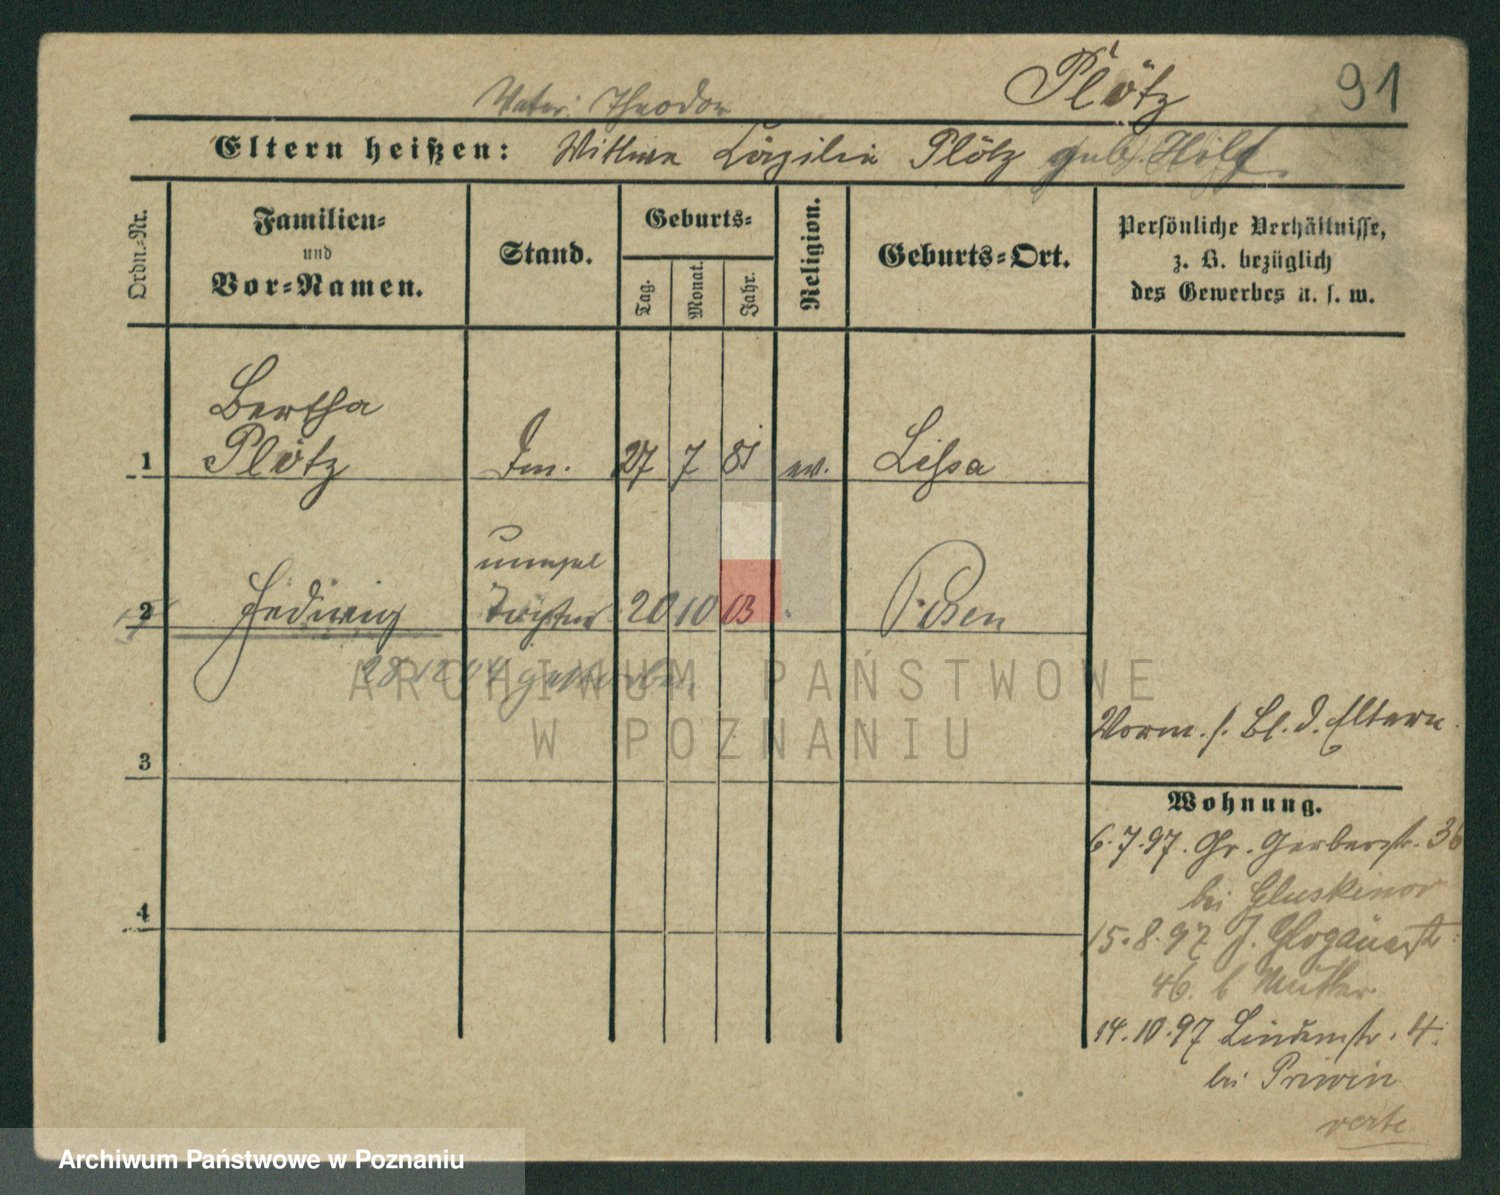 Plötz
91
Vater: Theodor
Eltern heißen: Wittwe Cäzilie Plötz geb. Hilf
Ordn.-Nr.
Familien-
und
Vor-Namen.
Stand.
Geburts-
Tag.
Monat.
Jahr.
Religion.
Geburts-Ort.
Persönliche Verhältnisse,
z. B. bezüglich
des Gewerbes u. s. w.
Bertha
1 Plötz 27 7 81 ev. Lissa
unehel
2 Hedwig Tochter 20 10 03 Posen
28.12. gestorben
Vorm. s. Bl. d. Eltern.
3
Wohnung.
6.7.97. Gr. Gerberstr. 36
bei Gluskinor
4
15.8.97 Glogauerstr
46. b Mutter
14.10.97 Lindenstr. 4.
bei Priwin
verte
ARCHIWUM PAŃSTWOWE
W POZNANIU
Archiwum Państwowe w Poznaniu